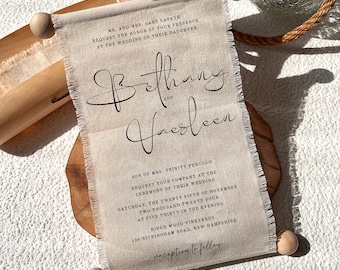 MR. AND MRS. GARY LAVATE
REQUEST THE HONOR OF YOUR PRESENCE
AT THE WEDDING OF THEIR DAUGHTER
Bethany
AND
Vaesleen
SON OF MRS. TRINITY PERCLUD
REQUEST YOUR COMPANY AT THE
CEREMONY OF THEIR WEDDING
SATURDAY, THE TWENTY FIFTH OF NOVEMBER
TWO THOUSAND TWENTY FOUR
AT FIVE THIRTY IN THE EVENING
BIRCH WOOD VINEYARDS
ROAD, NEW HAMPSHIRE
reception to follow